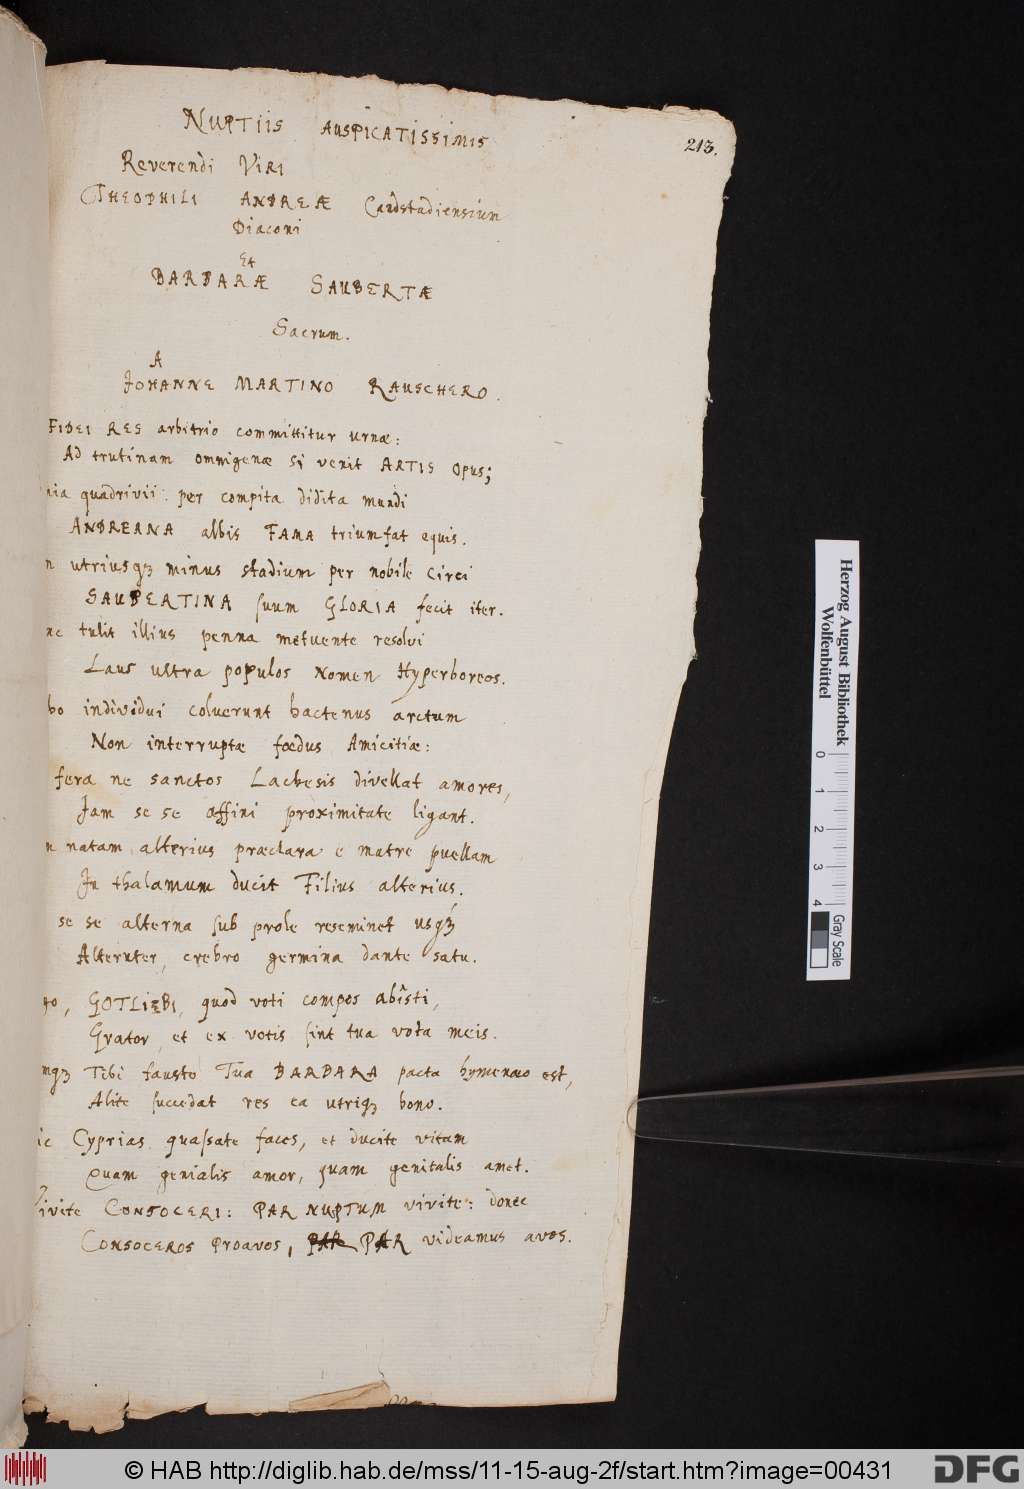 NUPTIIS AUSPICATISSIMIS
213.
Reverendi VIRI
THEOPHILI ANDREÆ
Diaconi
Et
BARBARÆ SAUBERTÆ
Sacrum.
A
JOHANNE MARTINO RAUSCHERO.
FIDEI RES arbitrio committitur urnæ:
Ad trutinam omnigenæ si venit ARTIS opus;
quadrivii per compita didita mundi
ANDREANA albis FAMA triumfat equis.
utriusqꝫ minus stadium per nobile Circi
SAUBERTINA suum GLORIA fecit iter.
tulit illius penna metuente resolvi
Laus ultra populos Nomen Hyperboreos.
individui coluerunt hactenus arctum
Non interruptæ fœdus Amicitiæ:
fera ne sanctos Lachesis divellat amores,
Jam se se affini proximitate ligant.
natam alterius præclara e matre puellam
In thalamum ducit Filius alterius.
se se alterna sub prole reseminet usqꝫ
Alteruter, crebro germina dante satu.
GOTLIEBI, quod voti compos abîsti,
Grator, et ex votis sint tua vota meis.
Tibi fausto Tua BARBARA pacta hymenæo est,
Alite succedat res ea utriqꝫ bono.
Cyprias quassate faces, et ducite vitam
Quam genialis amor, quam genitalis amet.
Vivite CONSOCERI: PAR NUPTUM vivite: donec
CONSOCEROS PROAVOS, PAR videamus avos.
Herzog August Bibliothek
Wolfenbüttel
0 1 2 3 4
Gray Scale
© HAB http://diglib.hab.de/mss/11-15-aug-2f/start.htm?image=00431
DFG